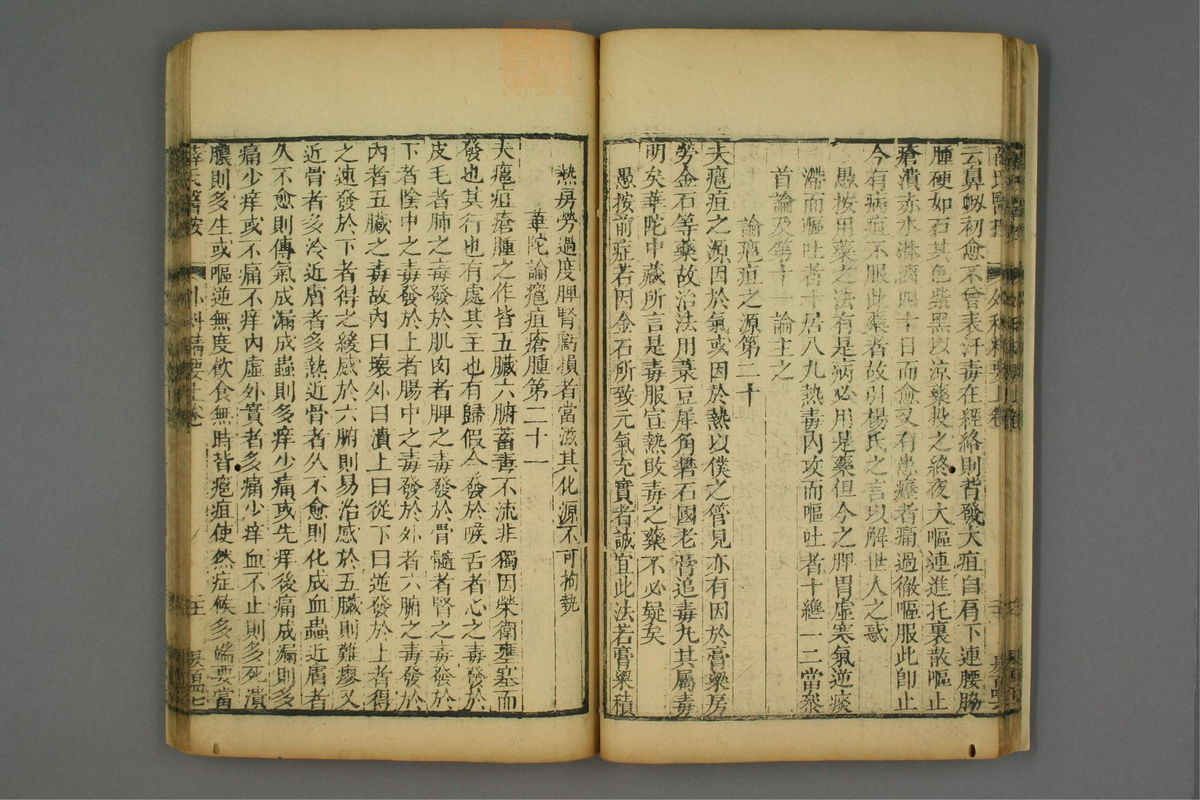 薛氏醫按 外科精要上卷
云鼻衂初愈不曾表汗毒在經絡則背發大疽自肩下連腰脇
腫硬如石其色紫黑以涼藥投之終夜大嘔連進托裏散嘔止
瘡潰赤水淋漓四十日而愈又有患瘰者痛過徹嘔服此即止
今有病疽不服此藥者故引楊氏之言以解世人之惑
愚按用藥之法有是病必用是藥但今之脾胃虛寒氣逆痰
滯而嘔吐者十居八九熱毒內攻而嘔吐者十纔一二當叅
首論及第十一論主之
論癰疽之源第二十
夫癰疽之源因於氣或因於熱以僕之管見亦有因於膏粱房
勞金石等藥故治法用菉豆犀角礬石國老膏追毒丸其屬毒
明矣華陀中藏所言是毒服宣熱敗毒之藥不必疑矣
愚按前症若因金石所致元氣充實者誠宜此法若膏粱積
熱房勞過度脾腎虧損者當滋其化源不可拘執
華陀論癰疽瘡腫第二十一
夫癰疽瘡腫之作皆五臟六腑蓄毒不流非獨因榮衛壅塞而
發也其行也有處其主也有歸假令發於喉舌者心之毒發於
皮毛者肺之毒發於肌肉者脾之毒發於骨髓者腎之毒發於
下者陰中之毒發於上者陽中之毒發於外者六腑之毒發於
內者五臟之毒故內曰壞外曰潰上曰從下曰逆發於上者得
之速發於下者得之緩感於六腑則易治感於五臟則難瘳又
近骨者多冷近膚者多熱近骨者久不愈則化成血蟲近膚者
久不愈則傳氣成漏成蟲則多痒少痛或先痒後痛成漏則多
痛少痒或不痛不痒內虛外實者多痛少痒血不止則多死潰
膿則多生或嘔逆無度飲食無時皆癰疽使然症候多端要當
薛氏醫按 外科精要上卷